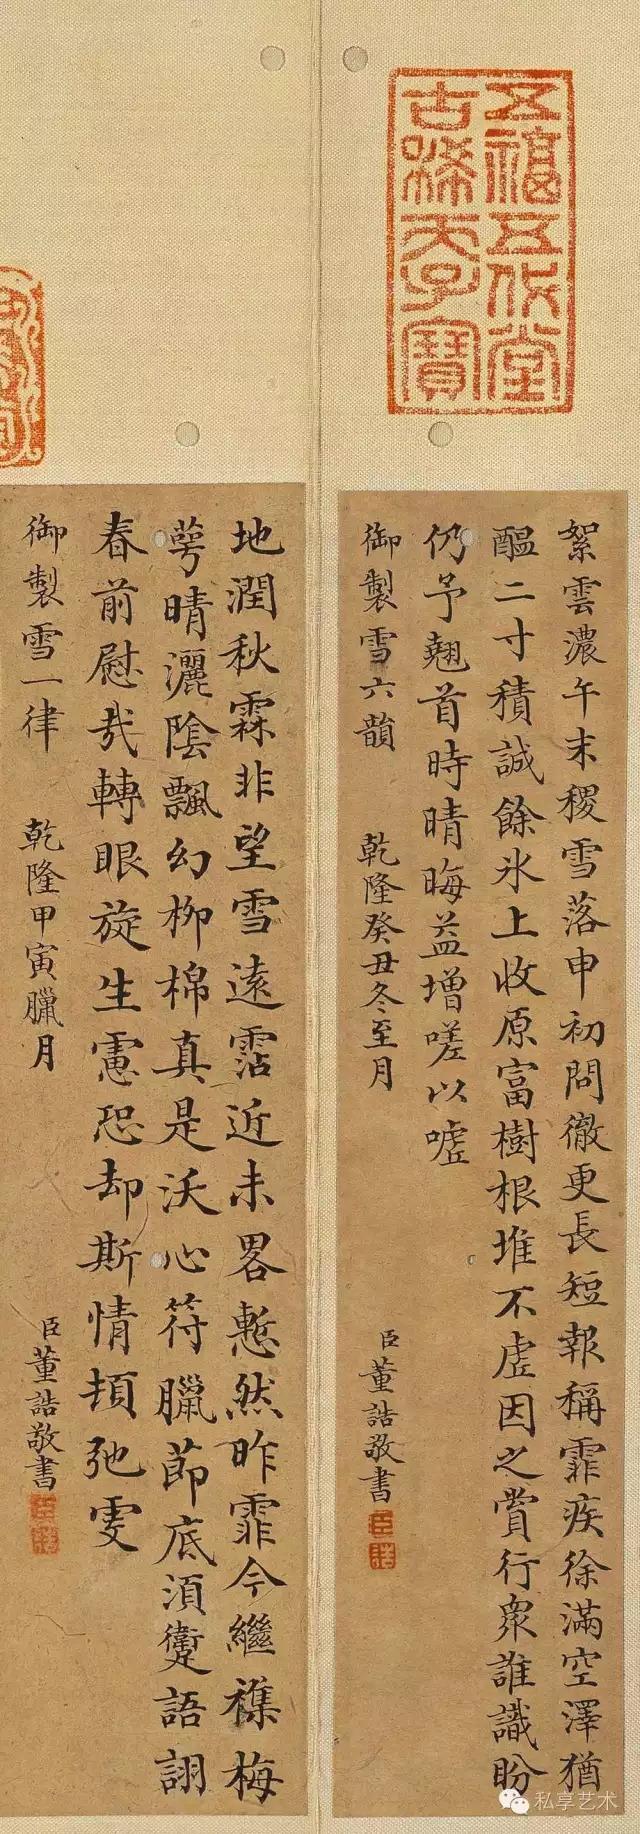 五福五代堂
古稀天子寶
絮雲濃午末稷雪落申初問徹更長短報稱霏疾徐滿空澤猶
醖二寸積誠餘氷上收原富樹根堆不虛因之賞行衆誰識盼
仍予翹首時晴晦益增嗟以噓
御製雪六韻 乾隆癸丑冬至月
臣董誥敬書
臣誥
地潤秋霖非望雪遠霑近未畧慙然昨霏今繼襍梅
萼晴灑陰飄幻柳棉真是沃心符臘節底須躗語詡
春前慰哉轉眼旋生慮恐却斯情頓弛雯
御製雪一律 乾隆甲寅臘月
臣董誥敬書
臣誥
私享艺术